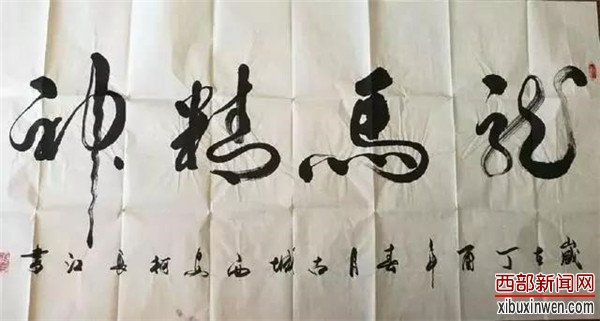 龍馬精神
歲在丁酉年春月古城西安柯長江書
西部新闻网
xibuxinwen.com